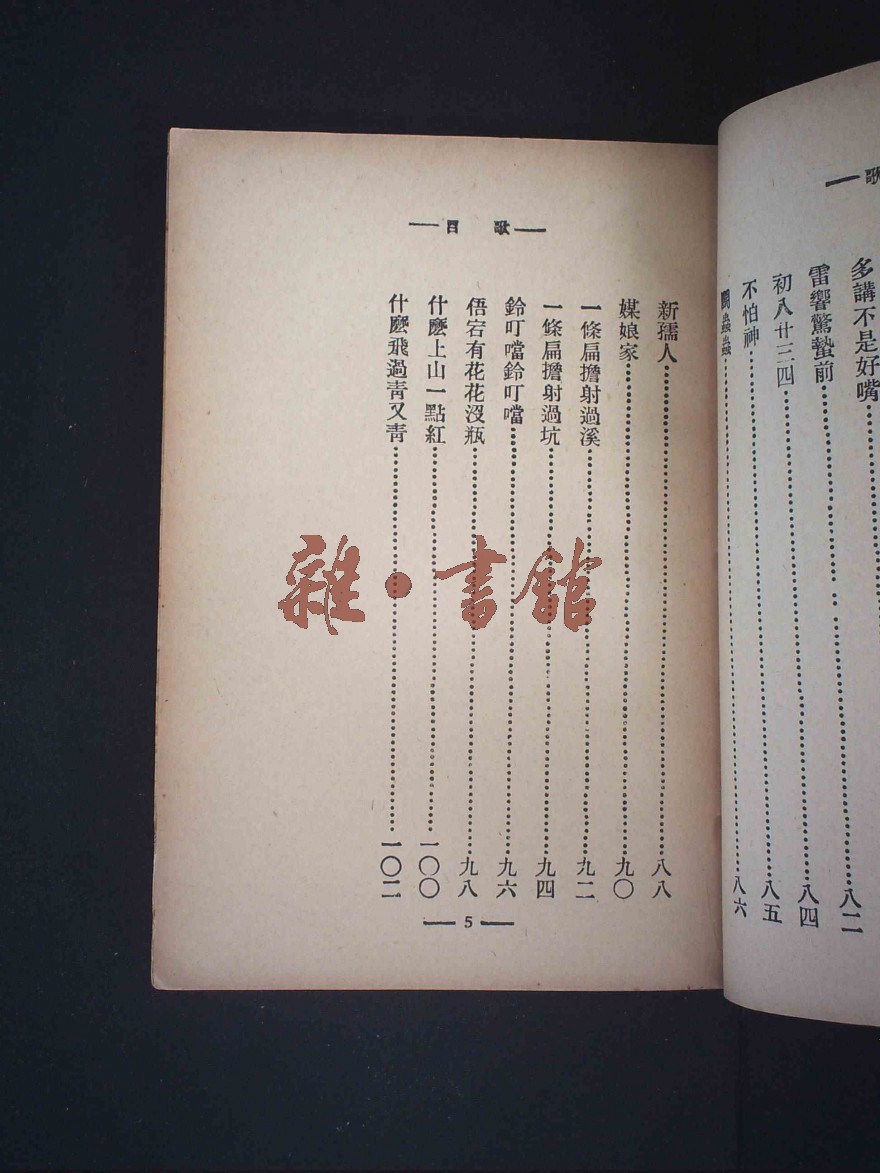 歌
多講不是好嘴……八二
雷響驚蟄前……八四
初八廿三四……八五
不怕神……八六
歌目
新孺人……八八
媒娘家……九〇
一條扁擔射過溪……九二
一條扁擔射過坑……九四
鈴叮噹鈴叮噹……九六
俉宕有花花沒瓶……九八
什麽上山一點紅……一〇〇
什麽飛過靑又靑……一〇二
5
雜·書館